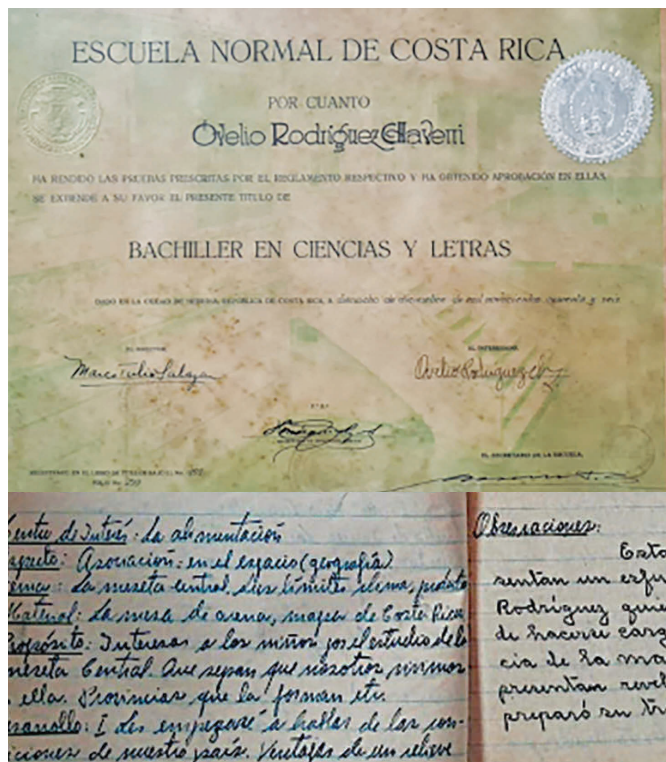 ESCUELA NORMAL DE COSTA RICA
POR CUANTO
Ovelio Rodríguez Chaverri
HA RENDIDO LAS PRUEBAS PRESCRITAS POR EL REGLAMENTO RESPECTIVO Y HA OBTENIDO APROBACIÓN EN ELLAS,
SE EXTIENDE A SU FAVOR EL PRESENTE TITULO DE
BACHILLER EN CIENCIAS Y LETRAS
DADO EN LA CIUDAD DE HEREDIA, REPÚBLICA DE COSTA RICA, A dieciocho de diciembre de mil novecientos cuarenta y seis
EL DIRECTOR
EL INTERESADO
Marco Tulio Salazar
Ovelio Rodríguez Ch
Vº Bº
EL SECRETARIO DE LA ESCUELA,
REGISTRADO EN EL LIBRO DE TITULOS BAJO EL No.
FOLIO No.
entro de Interés: La alimentación
specto: Asociación: en el espacio (geografía)
ema: La meseta central, sus límites, clima, producto
Material: La mesa de arena, mapa de Costa Rica
Propósito: Interesar a los niños por el estudio de la
meseta Central. Que sepan que nosotros vivimos
ella. Provincias que la forman etc.
sarrollo: I Les empezaré a hablar de las con-
iciones de nuestro país. Ventajas de un relieve
Observaciones:
Esta
sentan un esfu
Rodríguez quie
de hacerse carg
cia de la ma
presentan revel
preparó su tr